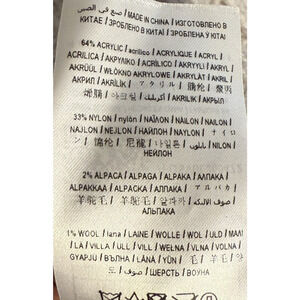 صنع في الصين / MADE IN CHINA / ИЗГОТОВЛЕНО В
КИТАЕ / ЗРОБЛЕНО В КИТАЇ / ЗРОБЛЕНА Ў КІТАІ
64% ACRYLIC / acrilico / ACRYLIQUE / ACRYL /
ACRILICA / АКРУЛІКО / ACRÍLICO / AKRYYLI / AKRYL /
AKRÜÜL / WŁÓKNO AKRYLOWE / AKRYLÁT / AKRIL /
АКРИЛ / AKRILIK / アクリル / 腈纶 / 聚丙
烯腈 / 아크릴 / أكريليك / AKRILIK / АКРИЛ
33% NYLON / nylon / ΝΑΪΛΟΝ / NÁILON / NAILON /
NAJLON / NEJLON / НАЙЛОН / NAYLON / ナイロ
ン / 锦纶 / 尼龍 / 나일론 / نايلون / NILON /
НЕЙЛОН
2% ALPACA / ALPAGA / ALPAKA / ΑΛΠΑΚΑ /
ALPAKKA / ALPACKA / АЛПАКА / アルパカ /
羊驼毛 / 羊駝毛 / 알파카 / صوف الالبكة /
АЛЬПАКА
1% WOOL / lana / LAINE / WOLLE / WOL / ULD / ΜΑΛΛΙ
/ LÃ / VILLA / ULL / VILL / WEŁNA / VLNA / VOLNA /
GYAPJÚ / ВЪЛНА / LÂNĂ / YÜN / 毛 / 羊毛 / 양
모 / صوف / ШЕРСТЬ / ВОУНА